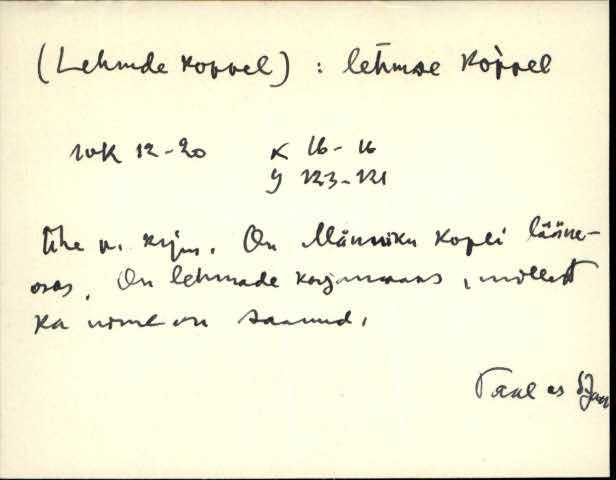 (Lehmde koppel) : lehmde koppel
ruk 12-20 x 16-16
y 123-121
Ühe n. krjm. On Männiku kopli lääne-
osas. On lehmade karjamaaks, millest
ka nime on saanud.